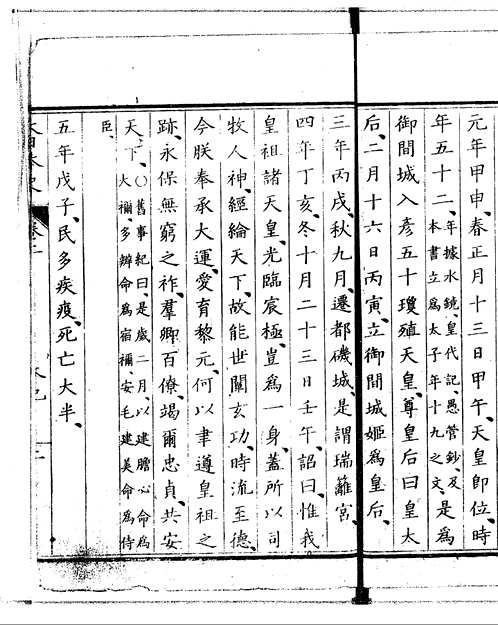 元年甲申、春正月十三日甲午、天皇即位時
年五十二、年據水鏡、皇代記、愚管鈔、及
本書立爲太子年十九之文、是爲
御間城入彥五十瓊殖天皇、尊皇后曰皇太
后、二月十六日丙寅、立御間城姬爲皇后、
三年丙戌、秋九月、遷都磯城、是謂瑞籬宮、
四年丁亥、冬十月二十三日壬午、詔曰、惟我
皇祖諸天皇、光臨宸極、豈爲一身、蓋所以司
牧人神、經綸天下、故能世闡玄功、時流至德、
今朕奉承大運、愛育黎元、何以聿遵皇祖之
跡、永保無窮之祚、羣卿百僚、竭爾忠貞、共安
天下、○舊事紀曰、是歲二月、以建膽心命爲
大禰、多辨命爲宿禰、安毛建美命爲侍
臣、
五年戊子、民多疾疫、死亡大半、